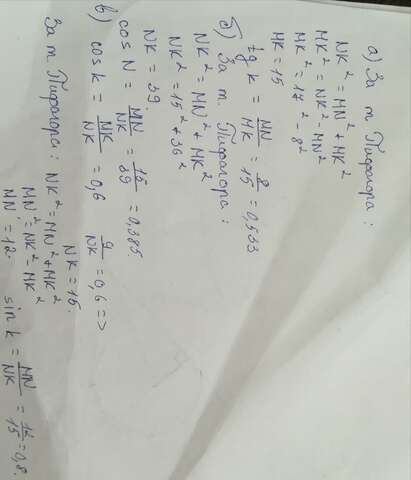 а) За т. Пифагора:
NK² = MN² + MK²
MK² = NK² - MN²
MK² = 17² - 8²
MK = 15
tg K = MN/MK = 8/15 = 0,533
б) За т. Пифагора:
NK² = MN² + MK²
NK² = 15² + 36²
NK = 39
cos N = MN/NK = 15/39 = 0,385
в) cos k = MK/NK = 0,6 9/NK = 0,6 =>
NK = 15.
За т. Пифагора: NK² = MN² + MK²
MN² = NK² - MK²
MN = 12. sin k = MN/NK = 12/15 = 0,8.